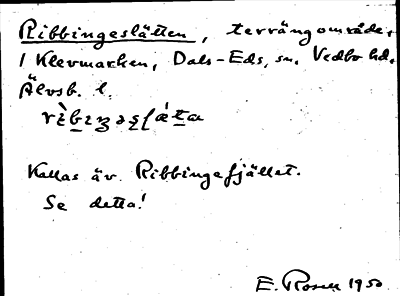 Ribbingeslätten, terrängområde.
i Klevmarken, Dals-Eds, sn. Vedbo hd.
Älvsb. l.
Kallas äv. Ribbingefjället.
Se detta!
E. Rosell 1950